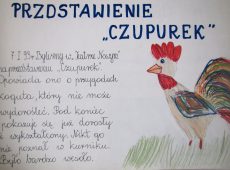 PRZDSTAWIENIE
„CZUPUREK"
7 I 99r. Byliśmy w „Teatrze
na przedstawieniu „Czupurek".
Opowiada ono o przygodach
koguta, który nie może
wydorośleć. Pod koniec
okazuje się już dorosły
i wykształcony. Nikt go
nie poznał w kurniku.
Było bardzo wesoło.